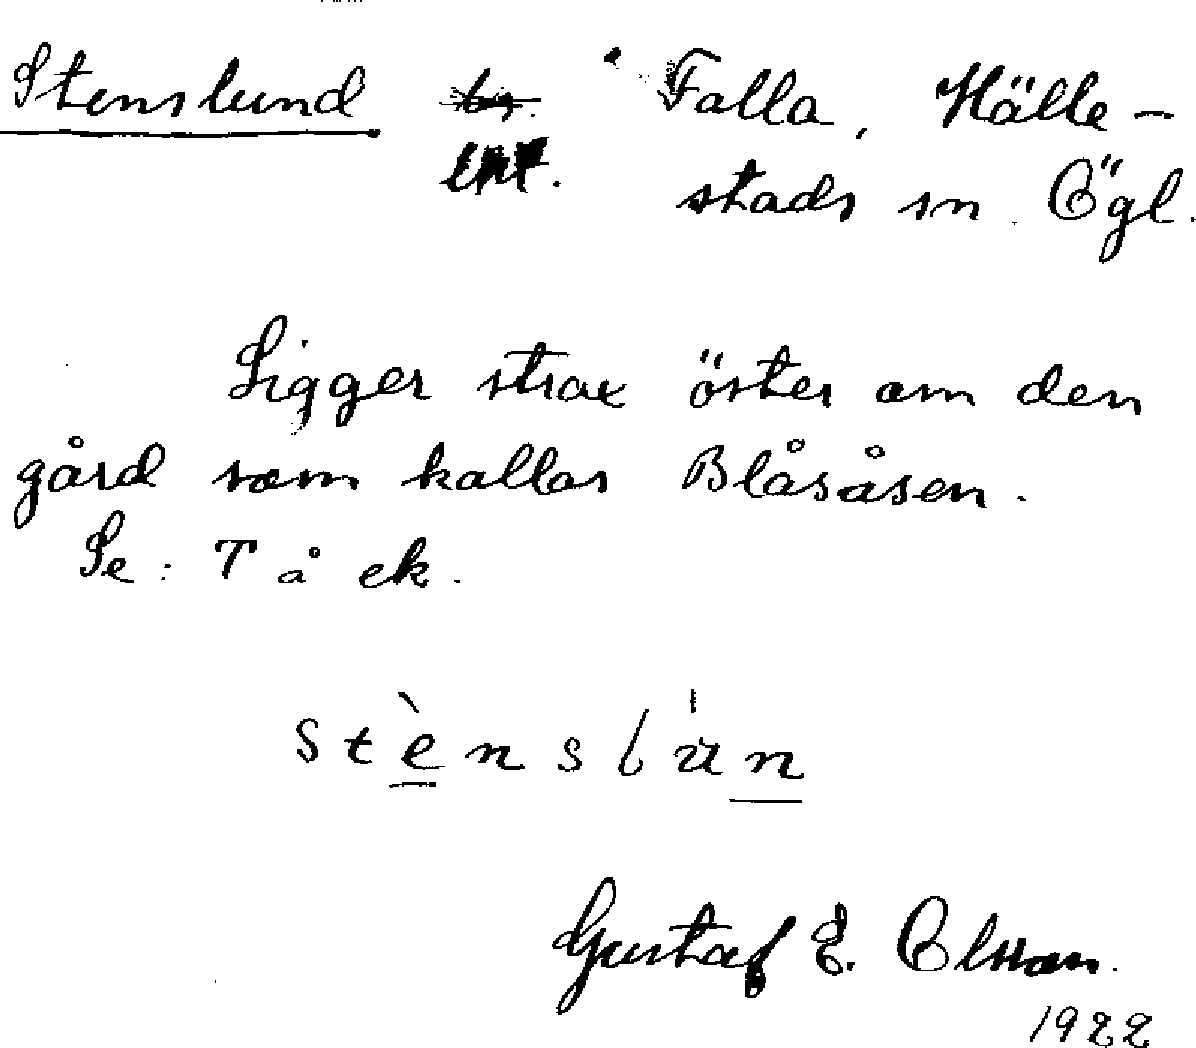 Stenslund by. Falla, Hälle-
lht. stads sn. Ögl.
Ligger strax öster om den
gård som kallas Blåsåsen.
Se: T å ek.
stènslun
Gustaf E. Olsson.
1922